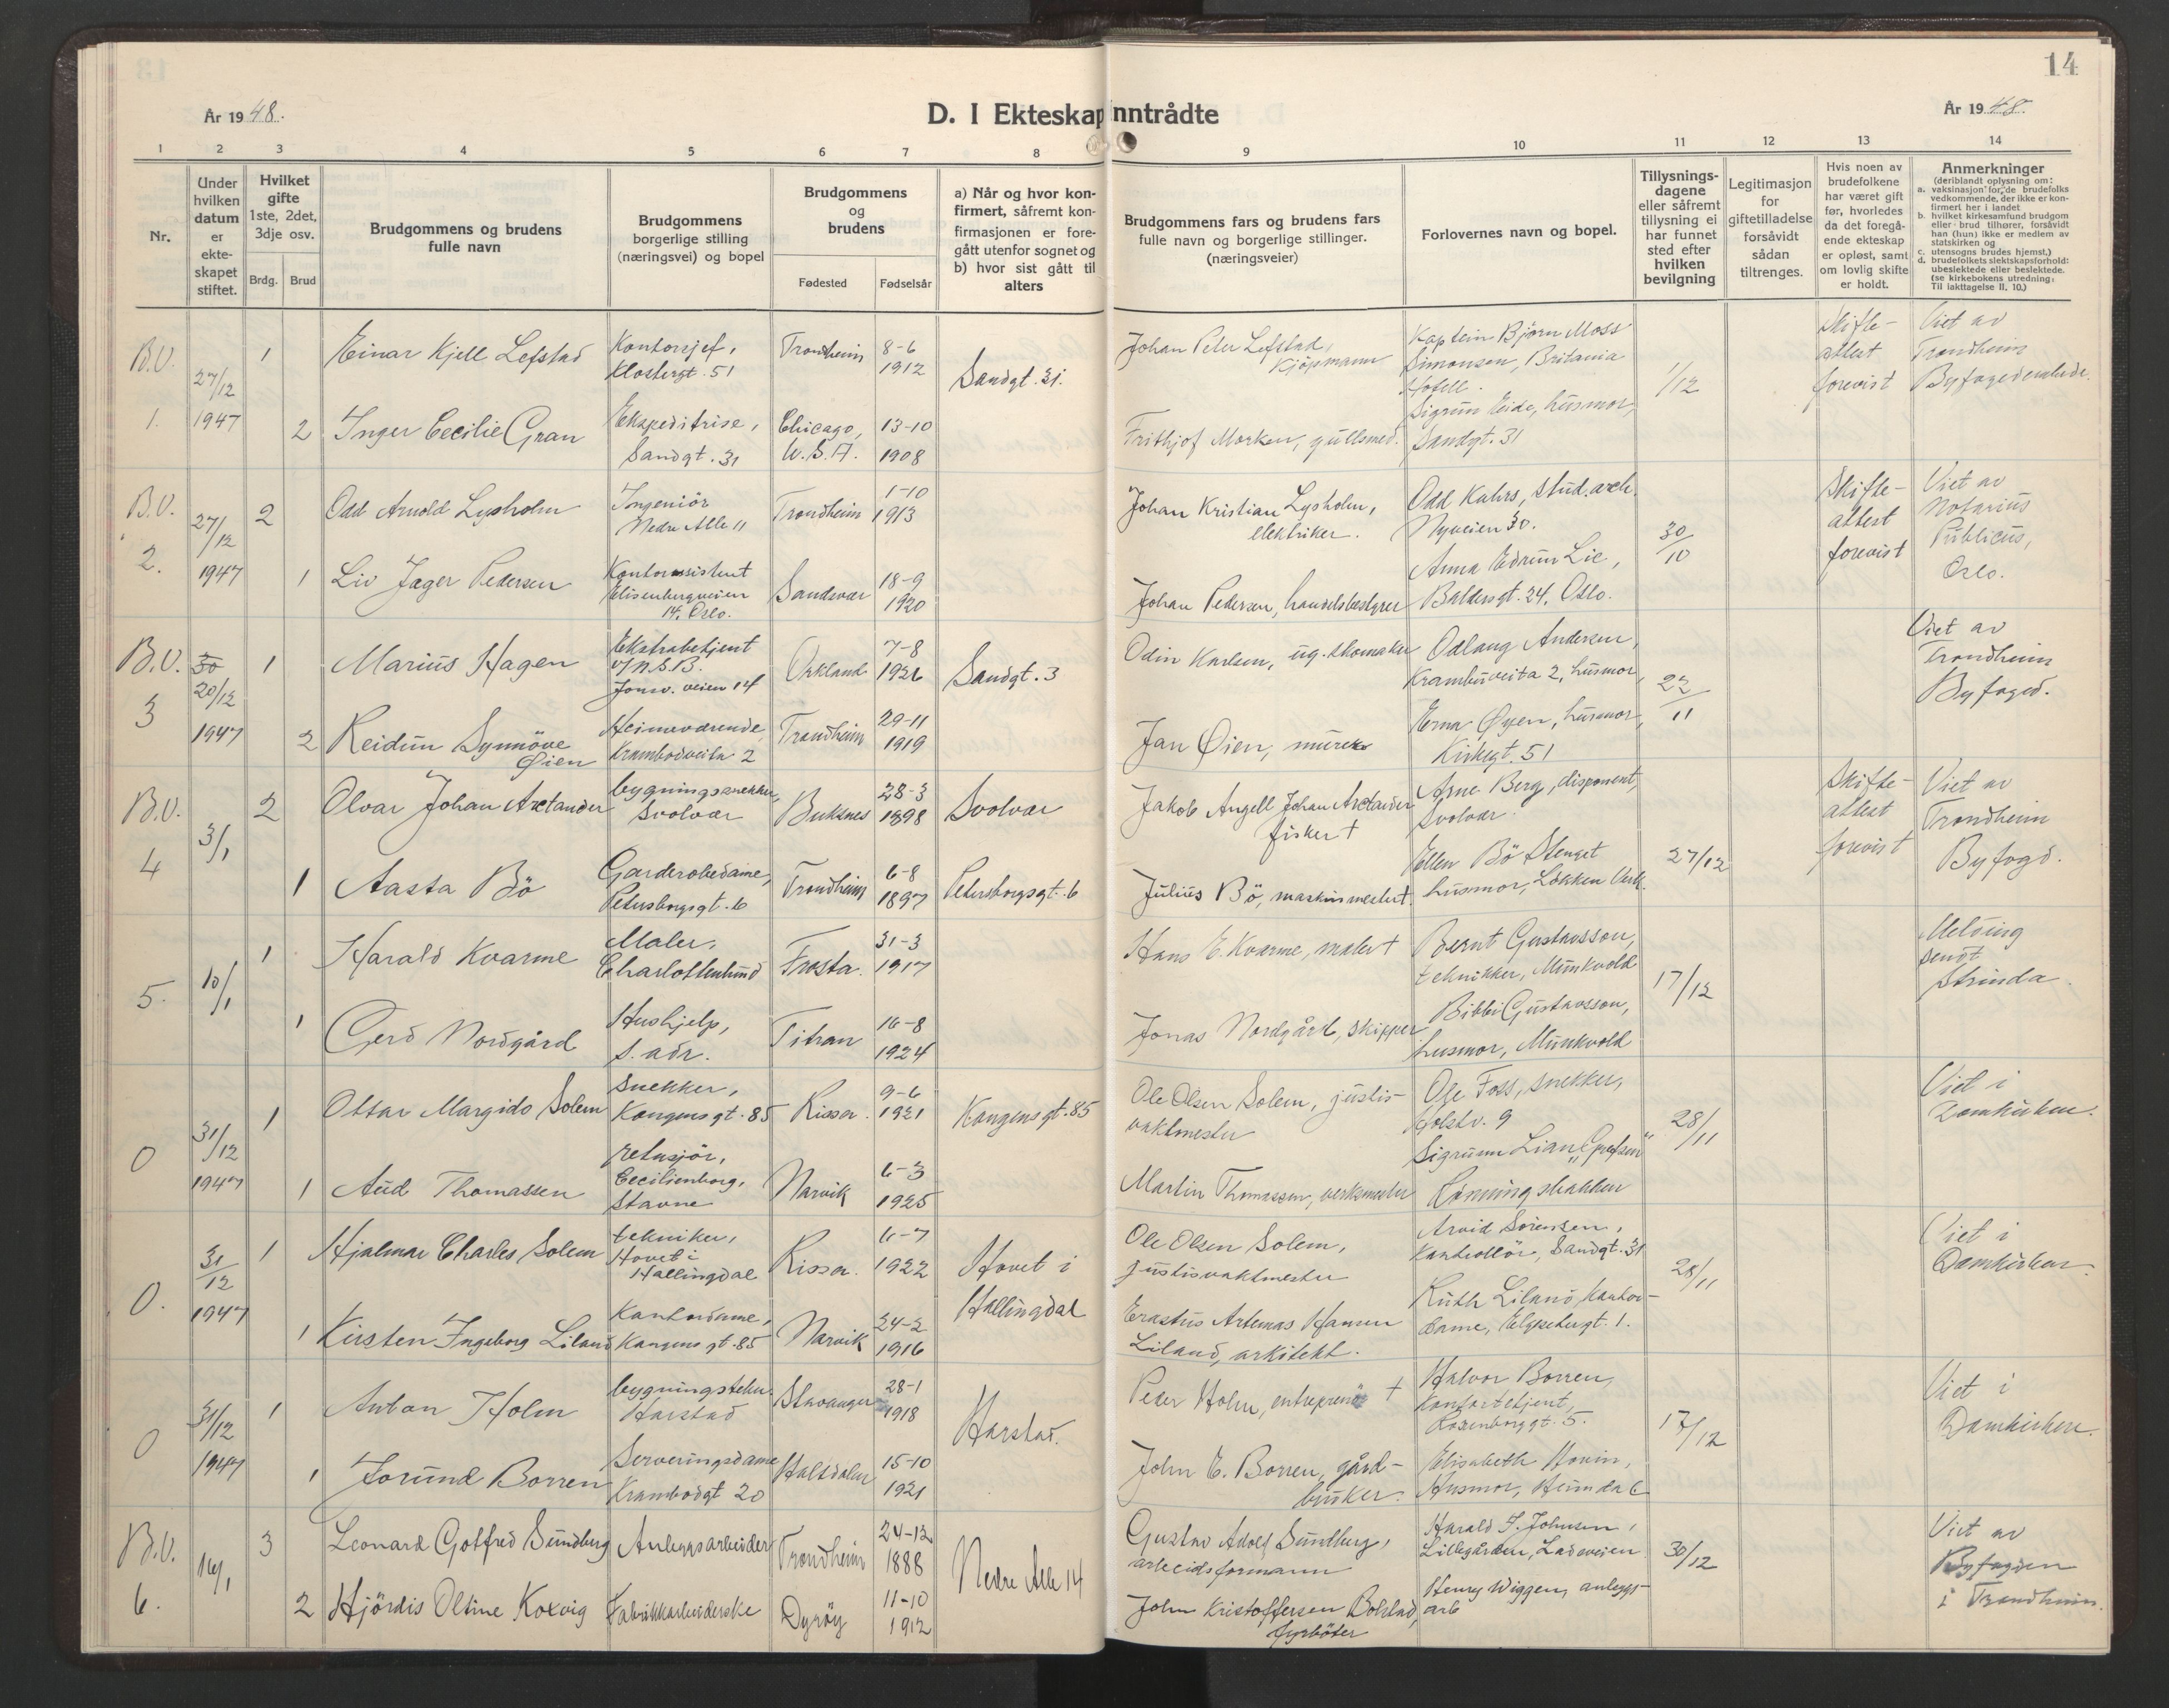 14
År 1948.
D. I Ekteskap inntrådte
År 1948.
1 2 3 4 5 6 7 8 9 10 11 12 13 14
Nr.
Under hvilken datum er ekte- skapet stiftet.
Hvilket gifte 1ste, 2det, 3dje osv.
Brdg. Brud
Brudgommens og brudens fulle navn
Brudgommens borgerlige stilling (næringsvei) og bopel
Brudgommens og brudens
Fødested Fødselsår
a) Når og hvor kon- firmert, såfremt kon- firmasjonen er fore- gått utenfor sognet og b) hvor sist gått til alters
Brudgommens fars og brudens fars fulle navn og borgerlige stillinger. (næringsveier)
Forlovernes navn og bopel.
Tillysnings- dagene eller såfremt tillysning ei har funnet sted efter hvilken bevilgning
Legitimasjon for giftetilladelse forsåvidt sådan tiltrenges.
Hvis noen av brudefolkene har været gift før, hvorledes da det foregå- ende ekteskap er opløst, samt om lovlig skifte er holdt.
Anmerkninger
(deriblandt oplysning om:
a. vaksinasjon for de brudefolks vedkommende, der ikke er kon- firmert her i landet
b. hvilket kirkesamfund brudgom eller brud tilhører, forsåvidt han (hun) ikke er medlem av statskirken og
c. utensogns brudes hjemst.)
d. brudefolkets slektskapsforhold: ubeslektede eller beslektede. (se kirkebokens utredning: Til iakttagelse II, 10.)
B.V. 1. 27/12 1947
1 Einar Kjell Lefstad Kontorsjef, Klostergt. 51 Trondheim 8-6 1912 Sandgt. 31.
Johan Peter Lefstad, Kjøpmann
Kaptein Bjørn Moss Simonsen, Britania Hotell.
1/12
Skifte- attest forevist
Viet av Trondheim
2 Inger Cecilie Gran Ekspeditrise, Sandgt. 31 Chicago, U.S.A. 13-10 1908
Frithjof Morken, gullsmed.
Sigrun Eide, husmor, Sandgt. 31
B.V. 2. 27/12 1947
2 Odd Arnold Lysholm Ingeniør Nedre Alle 11 Trondheim 1-10 1913
Johan Kristian Lysholm, elektriker.
Odd Kahrs, stud. ark. Nyveien 30.
30/10
Skifte- attest forevist
Viet av Notarius Publicus, Oslo.
1 Liv Jager Pedersen Kontorassistent Elisenbergveien 14, Oslo. Sandvær 18-9 1920
Johan Pedersen, handelsbestyrer
Anna Edrun Lie, Baldersgt. 24, Oslo.
B.V. 3 30 20/12 1947
1 Marius Hagen Ekstrabetjent v/N.S.B. Jonsv. veien 14 Orkland 7-8 1926 Sandgt. 3
Odin Karlsen, ug. skomaker
Odlaug Andersen, Krambuveita 2, husmor,
22/11
Viet av Trondheim Byfoged.
2 Reidun Synnöve Øien Heimeværende, Krambodveita 2 Trondheim 29-11 1919
Jan Øien, murer
Erna Øyen, husmor, Kirkegt. 51
B.V. 4 3/1
2 Olvar Johan Arctander bygningssnekker, Svolvær Buksnes 28-3 1898 Svolvær
Jakob Angell Johan Arctander fisker +
Arne Berg, disponent, Svolvær.
27/12
Skifte- attest forevist
Viet av Trondheim Byfogd.
1 Aasta Bö Garderobedame, Petersborgsgt. 6 Trondheim 6-8 1897 Petersborgsgt. 6
Julius Bö, maskinmester +
Ellen Bö Stenset husmor, Løkken Verk.
5. 10/1
1 Harald Kvarme Maler, Charlottenlund Frosta. 31-3 1917
Hans E. Kvarme, maler +
Bernt Gustavsson, tekniker, Munkvold
17/12
Melding sendt Strinda.
1 Gerd Nordgård Hushjelp, s. adr. Titran 16-8 1924
Jonas Nordgård, skipper
Bibbi Gustavsson, husmor, Munkvold
0 31/12 1947
1 Ottar Margido Solem Snekker, Kongensgt. 85 Rissa. 9-6 1921 Kongensgt. 85
Ole Olsen Solem, justis- vaktmester
Ole Foss, snekker, Holstv. 9
28/11
Viet i Domkirken.
1 Aud Thomassen retusjør, Cecilienborg, Stavne Narvik 6-3 1925
Martin Thomassen, verksmester
Sigrunn Lian
0. 31/12 1947
1 Hjalmar Charles Solem tekniker, Hovet i Hallingdal Rissa. 6-7 1922 Hovet i Hallingdal
Ole Olsen Solem, justisvaktmester
Arvid Sörensen, Kontrollör, Sandgt. 31
28/11
Viet i Domkirken.
1 Kirsten Ingeborg Liland Kontordame, Kongensgt. 85 Narvik 24-2 1916
Erastus Artemas Hansen Liland, arkitekt.
Ruth Liland, kontor- dame,
0 31/12 1947
1 Anton Holm bygningstekn. Harstad Stavanger 28-1 1918 Harstad.
Peder Holm, entreprenör +
Halvor Borren, Kontorbetjent, Rosenborggt. 5.
17/12
Viet i Domkirken.
1 Jorund Borren Serveringsdame Krambodgt 20 Haltdalen 15-10 1921
John E. Borren, gård- bruker.
Elisabeth Hovin, Husmor, Heimdal
B.V. 6. 16/1
3 Leonard Gotfred Sundberg Anleggsarbeider Trondheim 24-12 1888 Nedre Alle 14
Gustav Adolf Sundberg, arbeidsformann
Harald J. Johnsen, Lillegården, Ladeveien
30/12
Viet av Byfogden i Trondheim.
2 Hjördis Oltine Koxvig Fabrikkarbeiderske Dyrøy 11-10 1912
John Kristoffersen Bolstad, fyrböter
Henry Wiggen, anleggs- arb